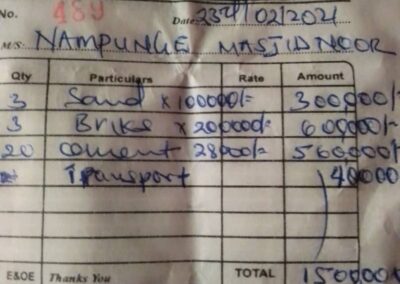 No. 489
Date 23rd/02/2021
M/S. NAMPUNGE MASJID NOOR
Qty Particulars Rate Amount
3 Sand x 100000/= 300,000/=
3 Briks x 200000/= 600,000/=
20 cement 28000/= 560,000/=
Transport 40000
E&OE Thanks You TOTAL 150000